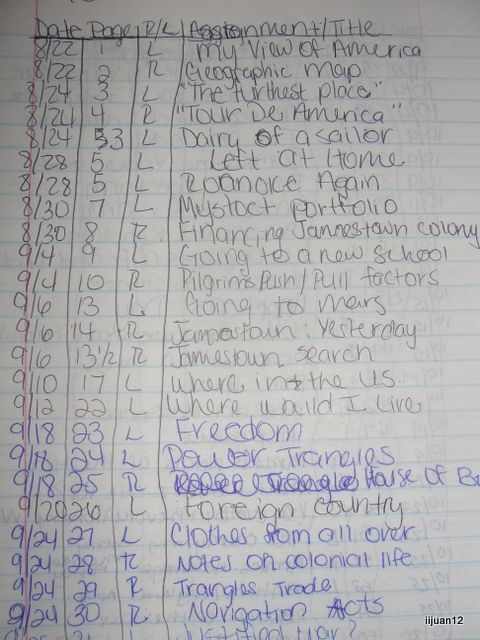 Date Page R/L Assignment/Title
8/22 1 L My View of America
8/22 2 R Geographic map
8/24 3 L "The furthest place"
8/24 4 R "Tour De America"
8/24 3 L Dairy of a sailor
8/28 5 L Left at Home
8/28 5 L Roanoke Again
8/30 7 L portfolio
8/30 8 R Financing Jamestown colony
9/4 9 L Going to a new school
9/4 10 R Pilgrims Push/Pull factors
9/6 13 L Going to mars
9/6 14 R Jamestown: Yesterday
9/6 13½ R Jamestown search
9/10 17 L where in the US
9/12 22 L where would I Live
9/18 23 L Freedom
9/18 24 L Power Trangles
9/18 25 R House of
9/20 26 L Foreign country
9/24 27 L Clothes from all over
9/24 28 R Notes on colonial life
9/24 29 R Trangles Trade
9/24 30 R Navigation Acts
iijuan12